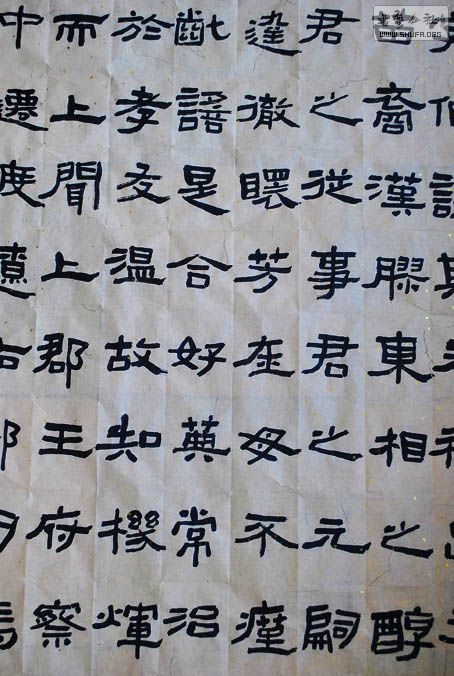 伯謙其先祖出
裔漢膠東相之醇
君之從事君之元嗣
達徹芳在母不瘽
齔是合好常治
於孝友温故知機煇
而上聞上郡王府察
中遷度遼右部司馬
WWW.SHUFA.ORG